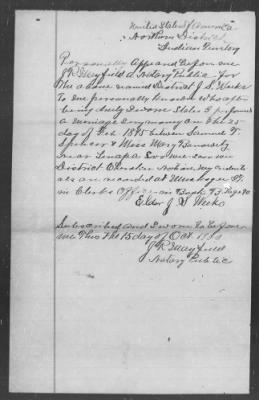 United States of America
Northern District
Indian Territory
Personally Appeared before me
J R Mayfield a Notary Public for
the above named District J. S. Weeks
to me personally known who after
being duly sworn States I performed
a marriage ceremony on the 25
day of Feb 1895 between Samuel T.
Spencer & Miss Mary
near Lenapah
District Cherokee Nation. My credentials
are recorded at Muskogee I.T.
in Clerks Office in Book B Page 40
Elder J S Weeks
Subscribed and Sworn to before
me this the 15 day of Oct 1900
J R Mayfield
Notary Public